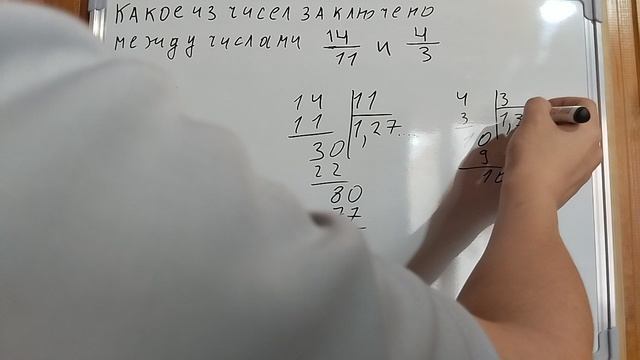 Какое из чисел заключено
между числами 14/11 и 4/3
14 | 11
11 | 1,27...
30
22
80
77
4 | 3
3 | 1,3
10
9
10